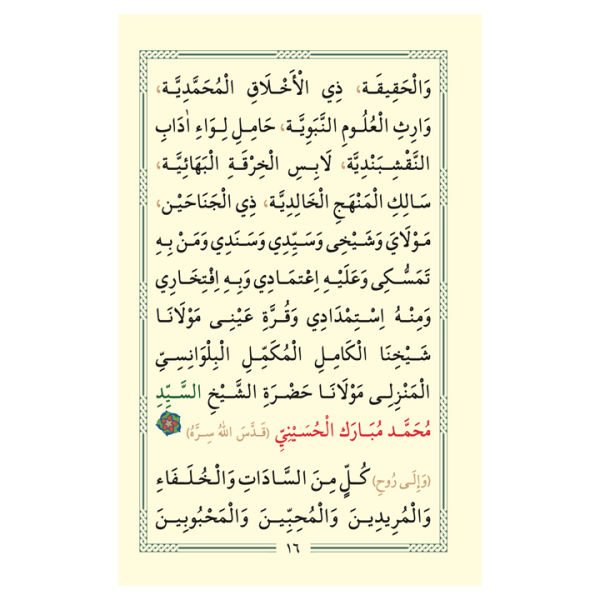 وَالْحَقِيقَةِ، ذِي الْأَخْلَاقِ الْمُحَمَّدِيَّةِ،
وَارِثِ الْعُلُومِ النَّبَوِيَّةِ، حَامِلِ لِوَاءِ اٰدَابِ
النَّقْشِبَنْدِيَّةِ، لَابِسِ الْخِرْقَةِ الْبَهَائِيَّةِ،
سَالِكِ الْمَنْهَجِ الْخَالِدِيَّةِ، ذِي الْجَنَاحَيْنِ،
مَوْلَايَ وَشَيْخِى وَسَيِّدِي وَسَنَدِي وَمَنْ بِهِ
تَمَسُّكِى وَعَلَيْهِ اِعْتِمَادِي وَبِهِ اِفْتِخَارِي
وَمِنْهُ اِسْتِمْدَادِي وَقُرَّةِ عَيْنِى مَوْلَانَا
شَيْخِنَا الْكَامِلِ الْمُكَمِّلِ الْبِلْوَانِسِيِّ
الْمَنْزِلِى مَوْلَانَا حَضْرَةِ الشَّيْخِ السَّيِّدِ
مُحَمَّد مُبَارَك الْحُسَيْنِيِّ (قَدَّسَ اللهُ سِرَّهُ)
(وَإِلَى رُوحِ) كُلٍّ مِنَ السَّادَاتِ وَالْخُلَفَاءِ
وَالْمُرِيدِينَ وَالْمُحِبِّينَ وَالْمَحْبُوبِينَ
١٦